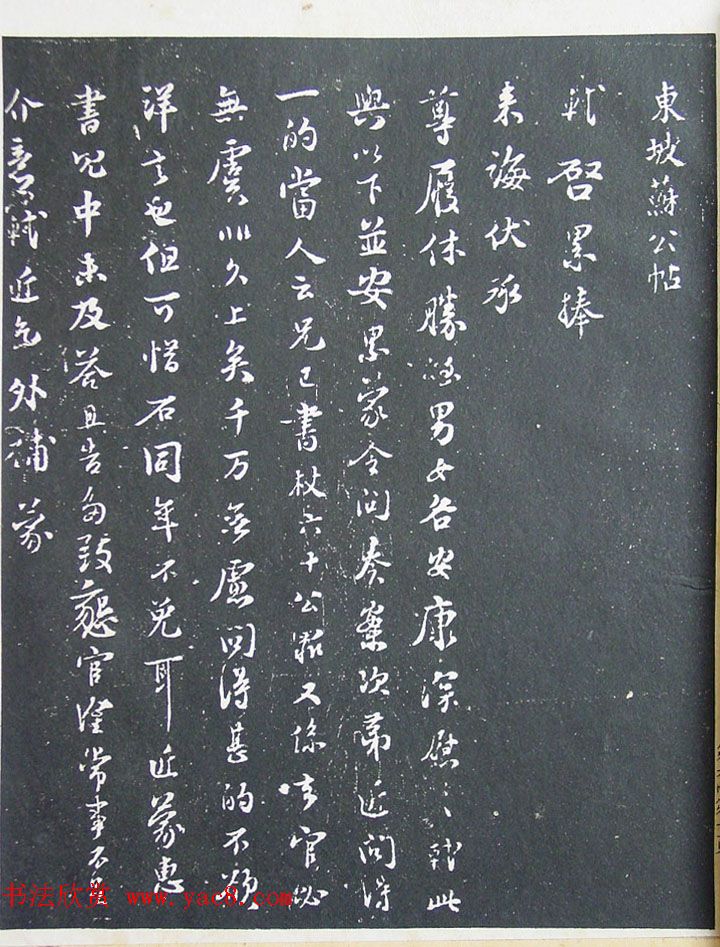 東坡蘇公帖
軾啓累捧
来誨伏承
尊履休勝男女各安康深慰々軾此
與以下並安累蒙令问奏案次第近问得
一的當人云兄已書杖六十公罪又係官必
無虞非久上矣千万无慮问得甚的不欲
詳言也但可惜石同年不免耳近蒙惠
書兄中未及答且告為致懇官滢常事不
介意軾近乞外補蒙
书法欣赏 www.yac8.com